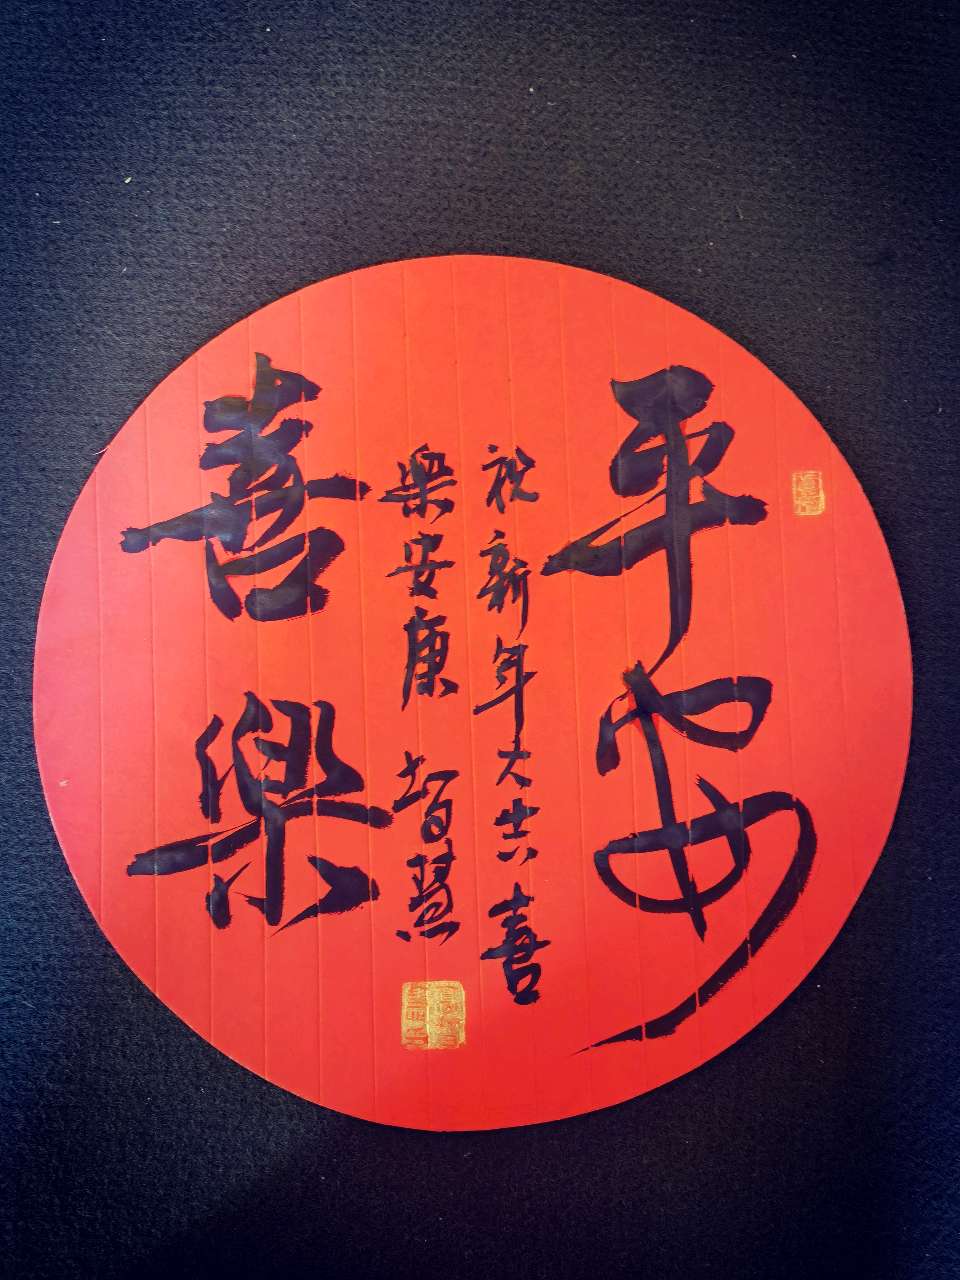 平安
祝新年大吉喜
樂安康 堦慧
喜樂